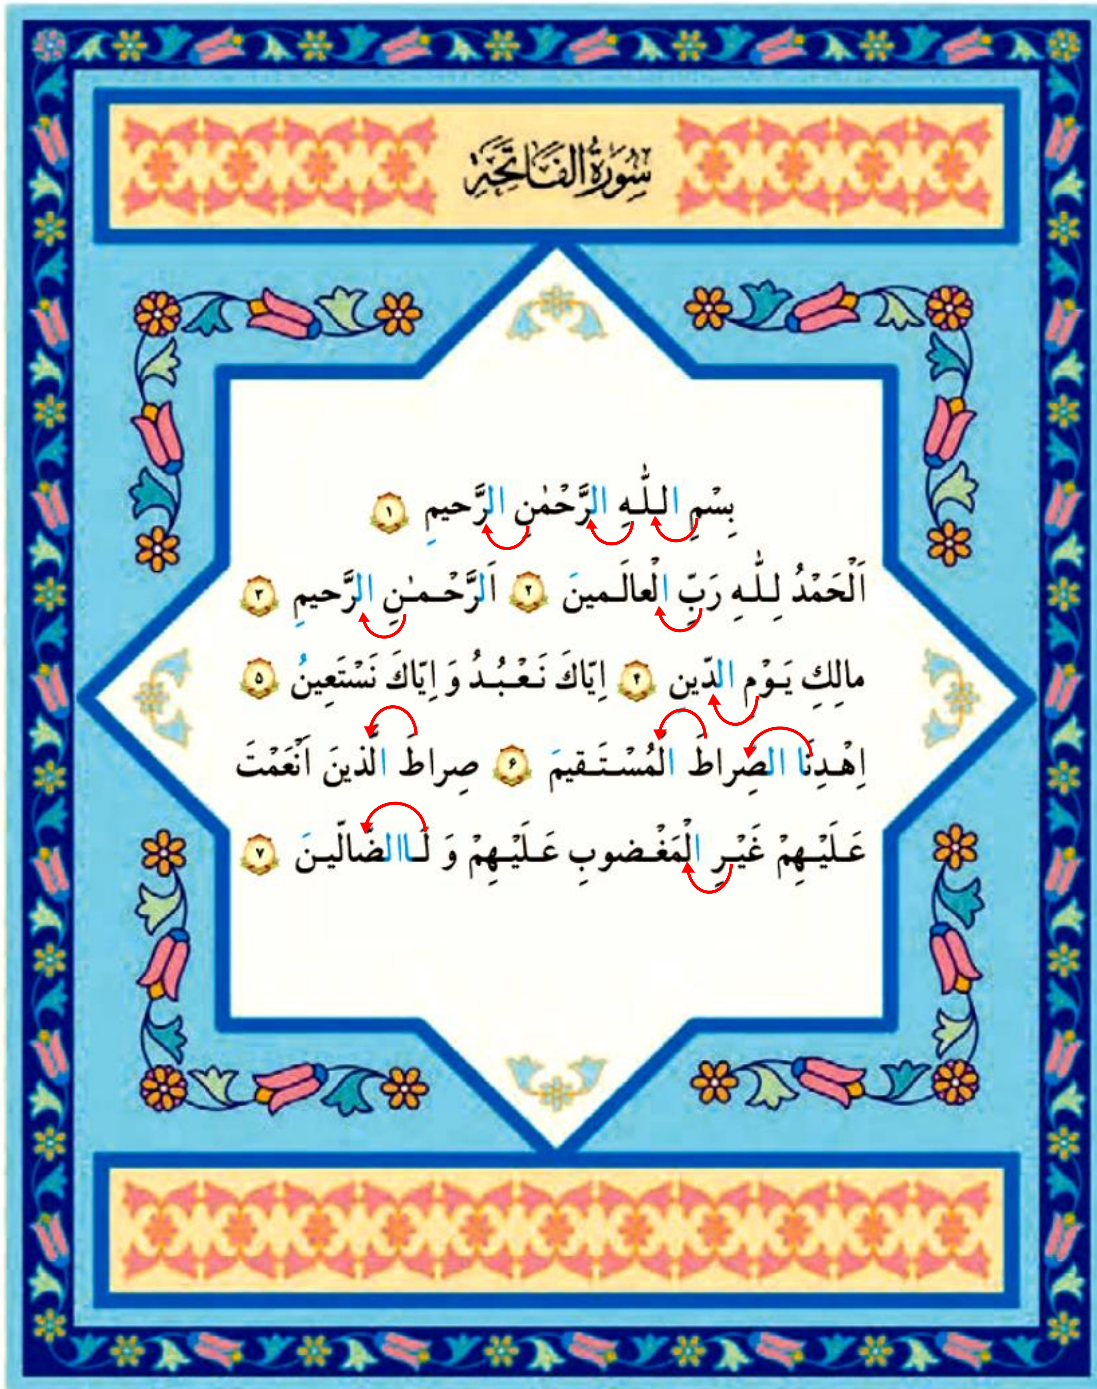 سُورَةُ الفَاتِحَةِ
بِسْمِ اللّٰهِ الرَّحْمٰنِ الرَّحيمِ ۱
اَلْحَمْدُ لِلّٰهِ رَبِّ الْعالَمينَ ۲ اَلرَّحْمٰنِ الرَّحيمِ ۳
مالِكِ يَوْمِ الدّينِ ۴ اِيّاكَ نَعْبُدُ وَ اِيّاكَ نَسْتَعِينُ ۵
اِهْدِنَا الصِراطَ الْمُسْتَقيمَ ۶ صِراطَ الَّذينَ اَنْعَمْتَ
عَلَيْهِمْ غَيْرِ الْمَغْضوبِ عَلَيْهِمْ وَ لَاالضّالّينَ ۷